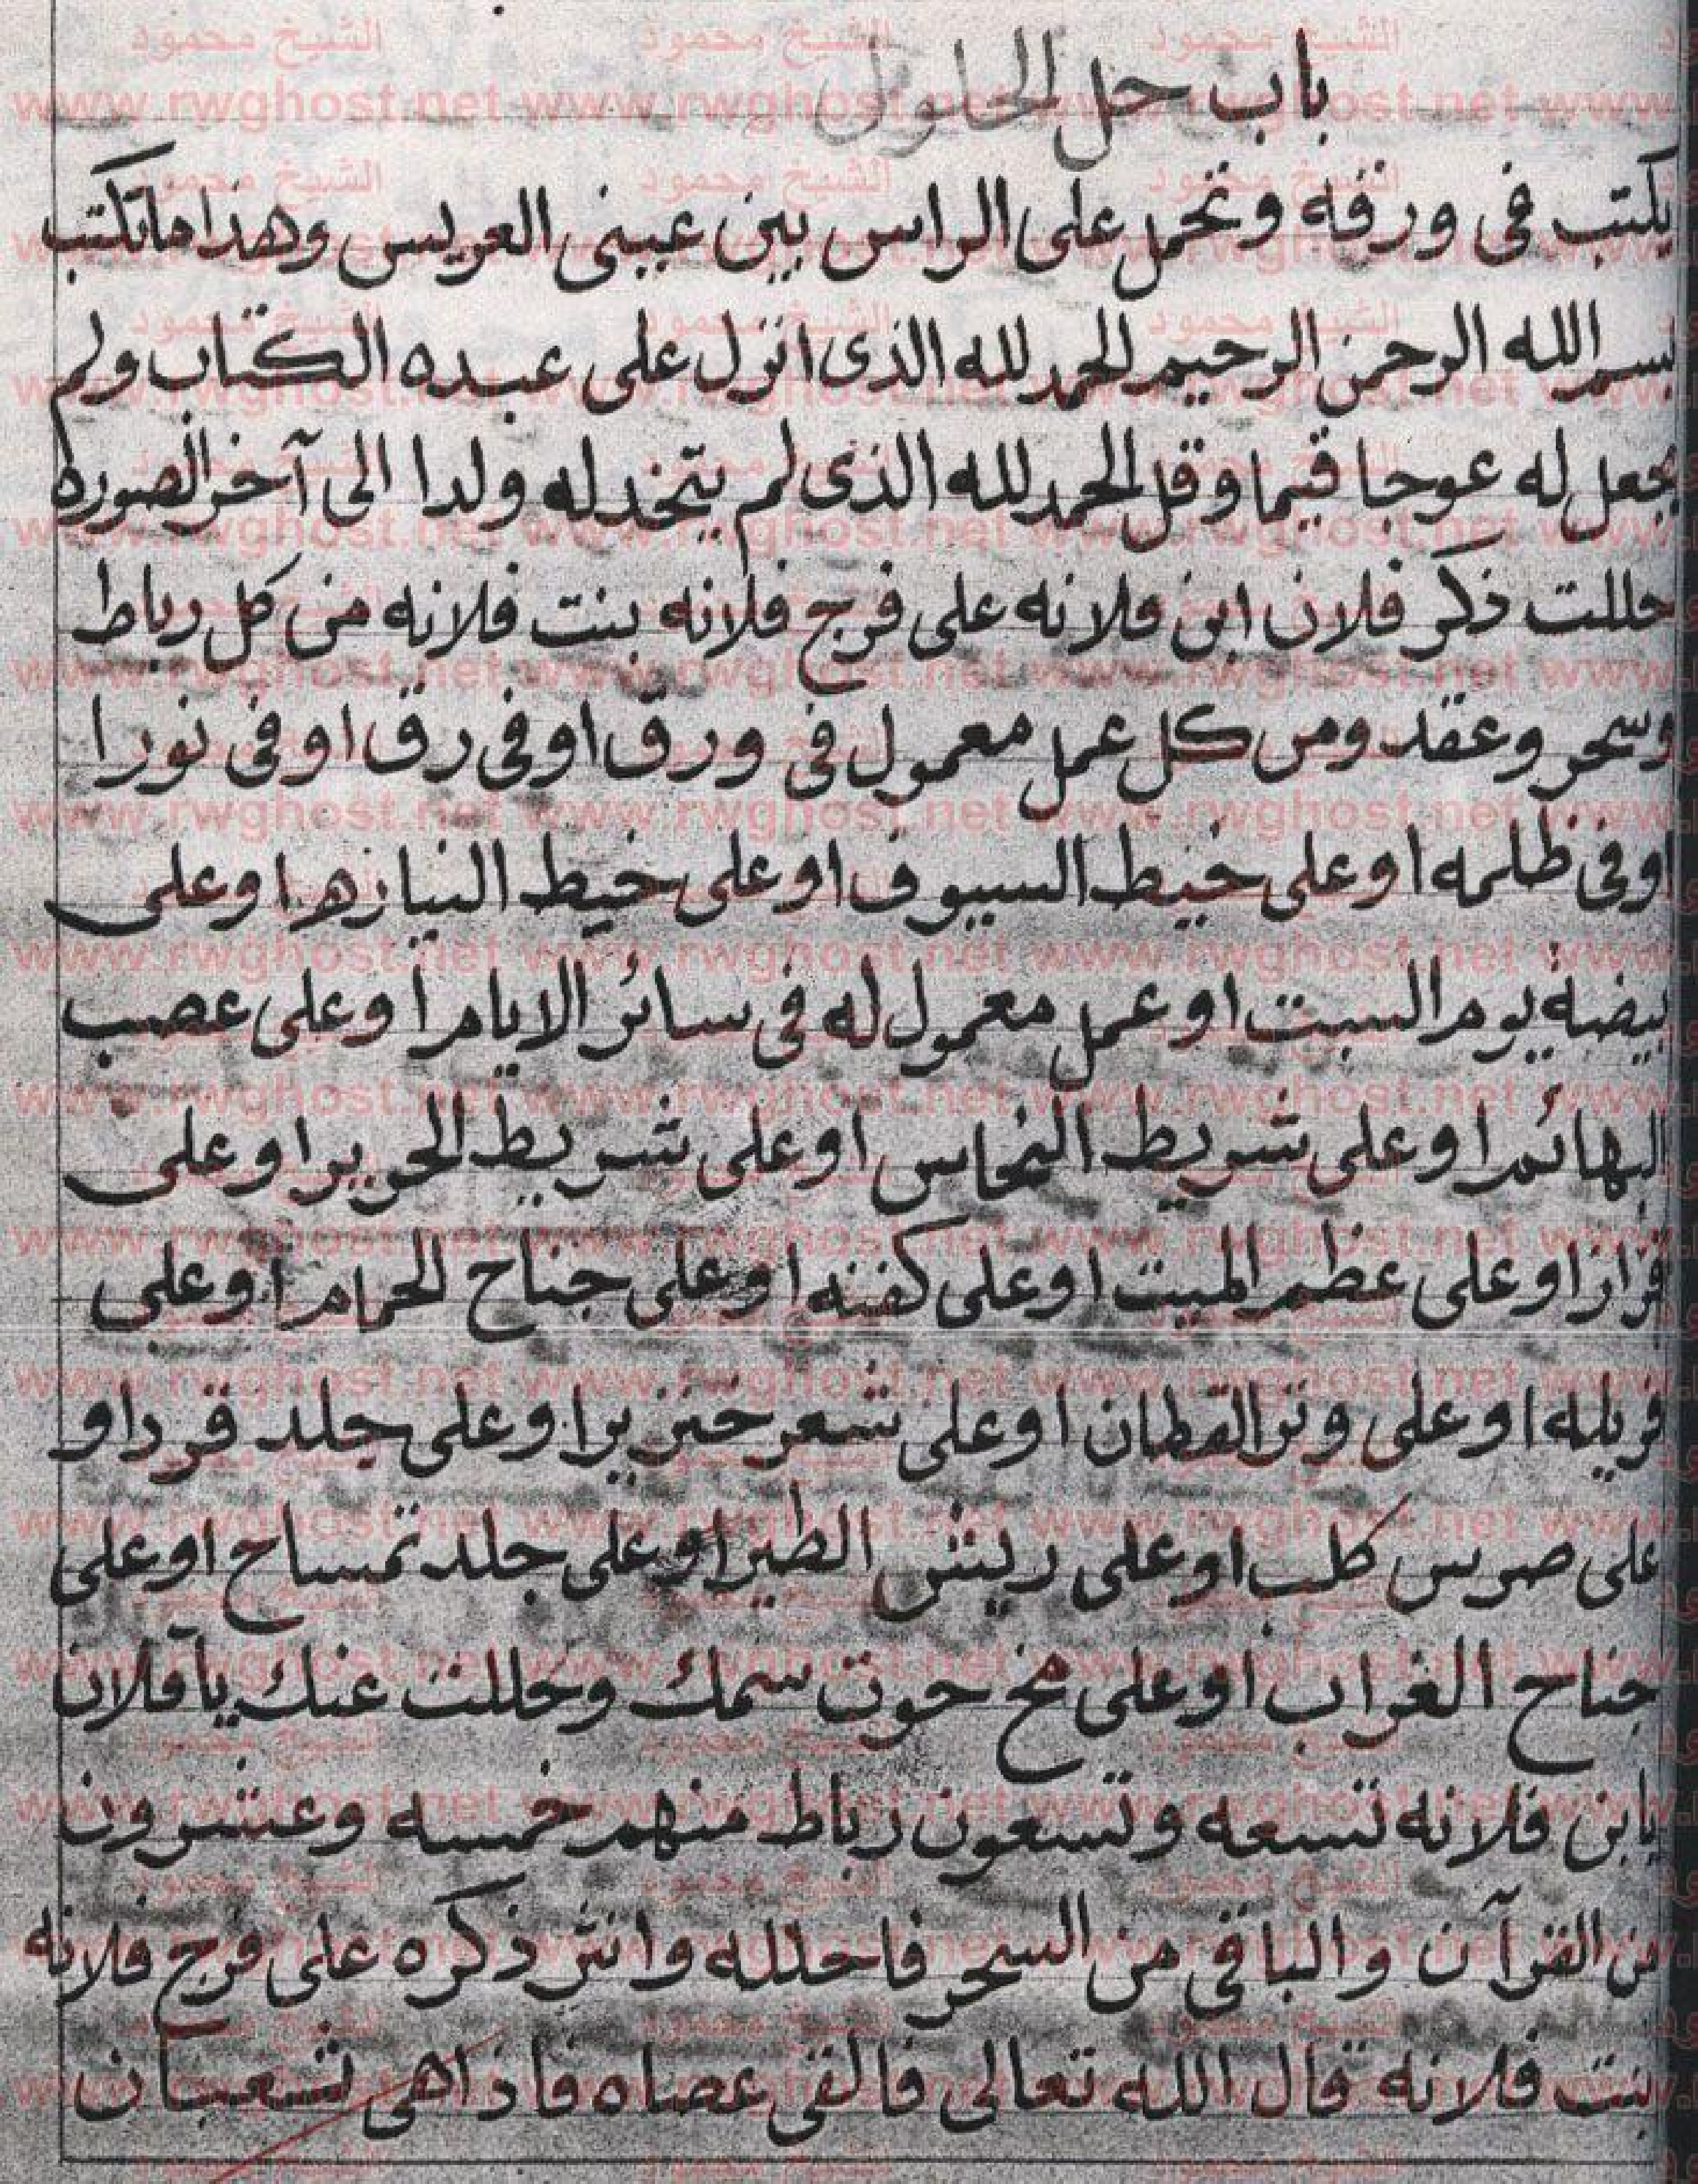 باب حل المحلول
يكتب فى ورقه وتحمل على الراس بين عينى العريس وهذا ما تكتب
بسم الله الرحمن الرحيم الحمد لله الذى انزل على عبده الكتاب ولم
يجعل له عوجا قيما وقل الحمد لله الذى لم يتخد له ولدا الى آخر الصوره
حللت ذكر فلان ابن فلانه على فرج فلانه بنت فلانه من كل رباط
وسحر وعقد ومن كل عمل معمول فى ورق او فى رق او فى نور ا
او فى ظلمه او على خيط السيوف او على خيط النيازها وعلى
بيضة يوم السبت او عمل معمول له فى سائر الايام او على عصب
البهائم او على شريط النحاس او على شريط الحرير او على
قزاز او على عظم الميت او على كفنه او على جناح الحمام او على
او على وتر القطان او على شعر خنزير او على جلد قرد او
على ضرس كلب او على ريش الطير او على جلد تمساح او على
جناح الغراب او على مخ حوت سمك وحللت عنك يا فلان
يابن فلانه تسعه وتسعون رباط منهم خمسه وعشرون
من القرآن والباقى من السحر فاحلله وانثر ذكره على فرج فلانه
بنت فلانه قال الله تعالى فالقى عصاه فاذا هى تشعبان
الشيخ محمود
www.rwghost.net